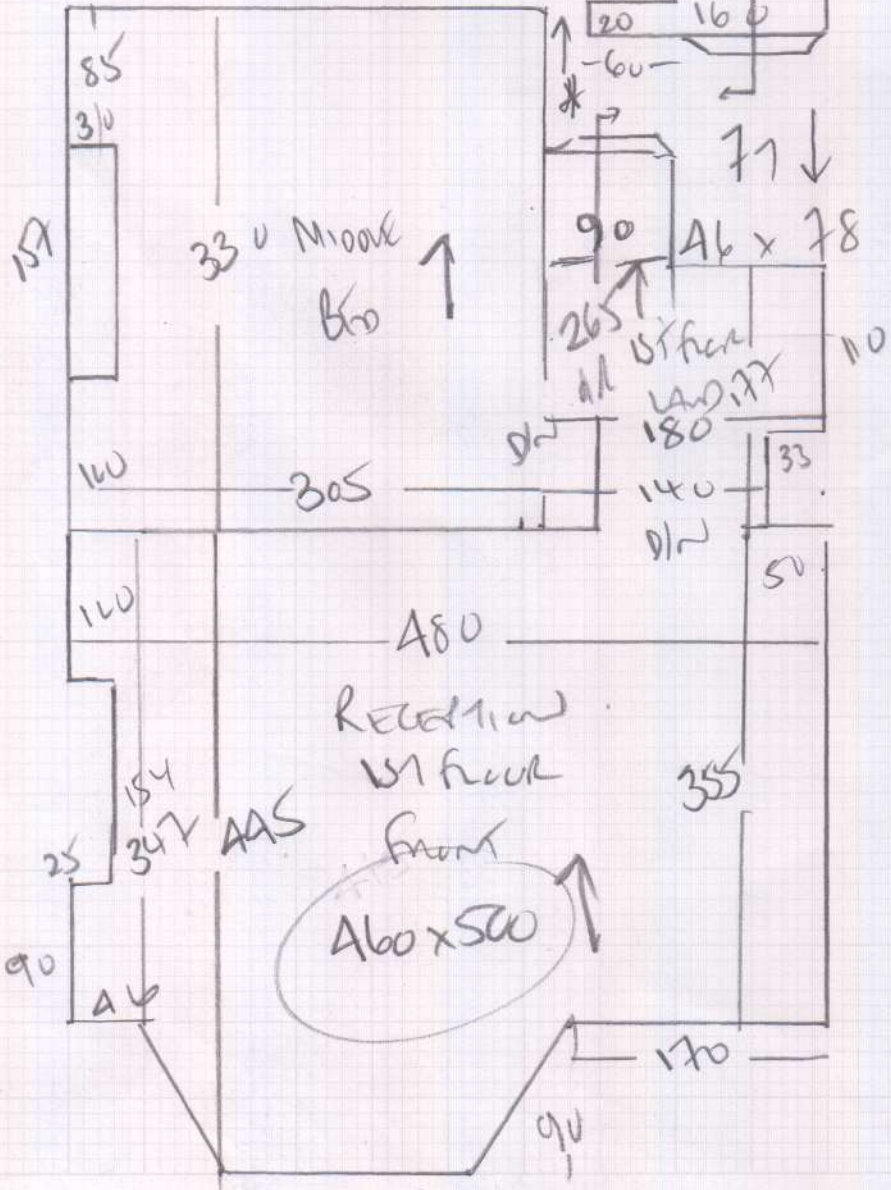 20 160
85
-60-
310
71
157
330 MIDDLE
BED
90
46 x 78
265
1ST FLOOR
110
LAND, 77
D/N
180
33
160
305
140
D/N
50
160
480
RECEPTION
1ST FLOOR
FRONT
355
154
347
445
25
460 x 500
90
46
170
90